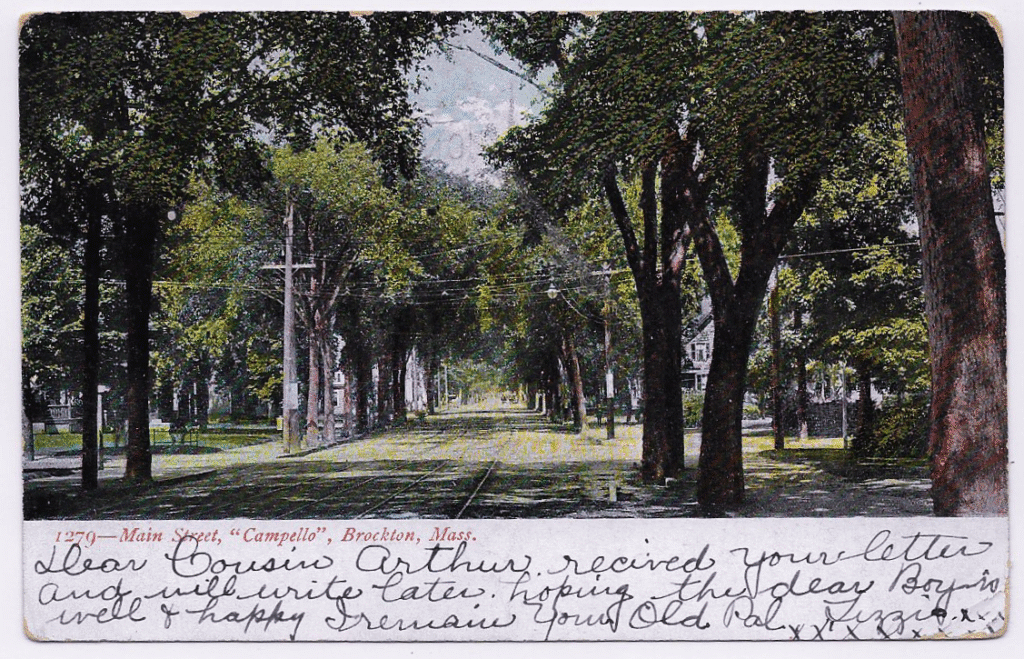 1279—Main Street, "Campello", Brockton, Mass.
Dear Cousin Arthur. recived your letter
and will write later. hoping the dear Boy is
well & happy I remain your Old Pal. Lizzie. x x
x x x x x x